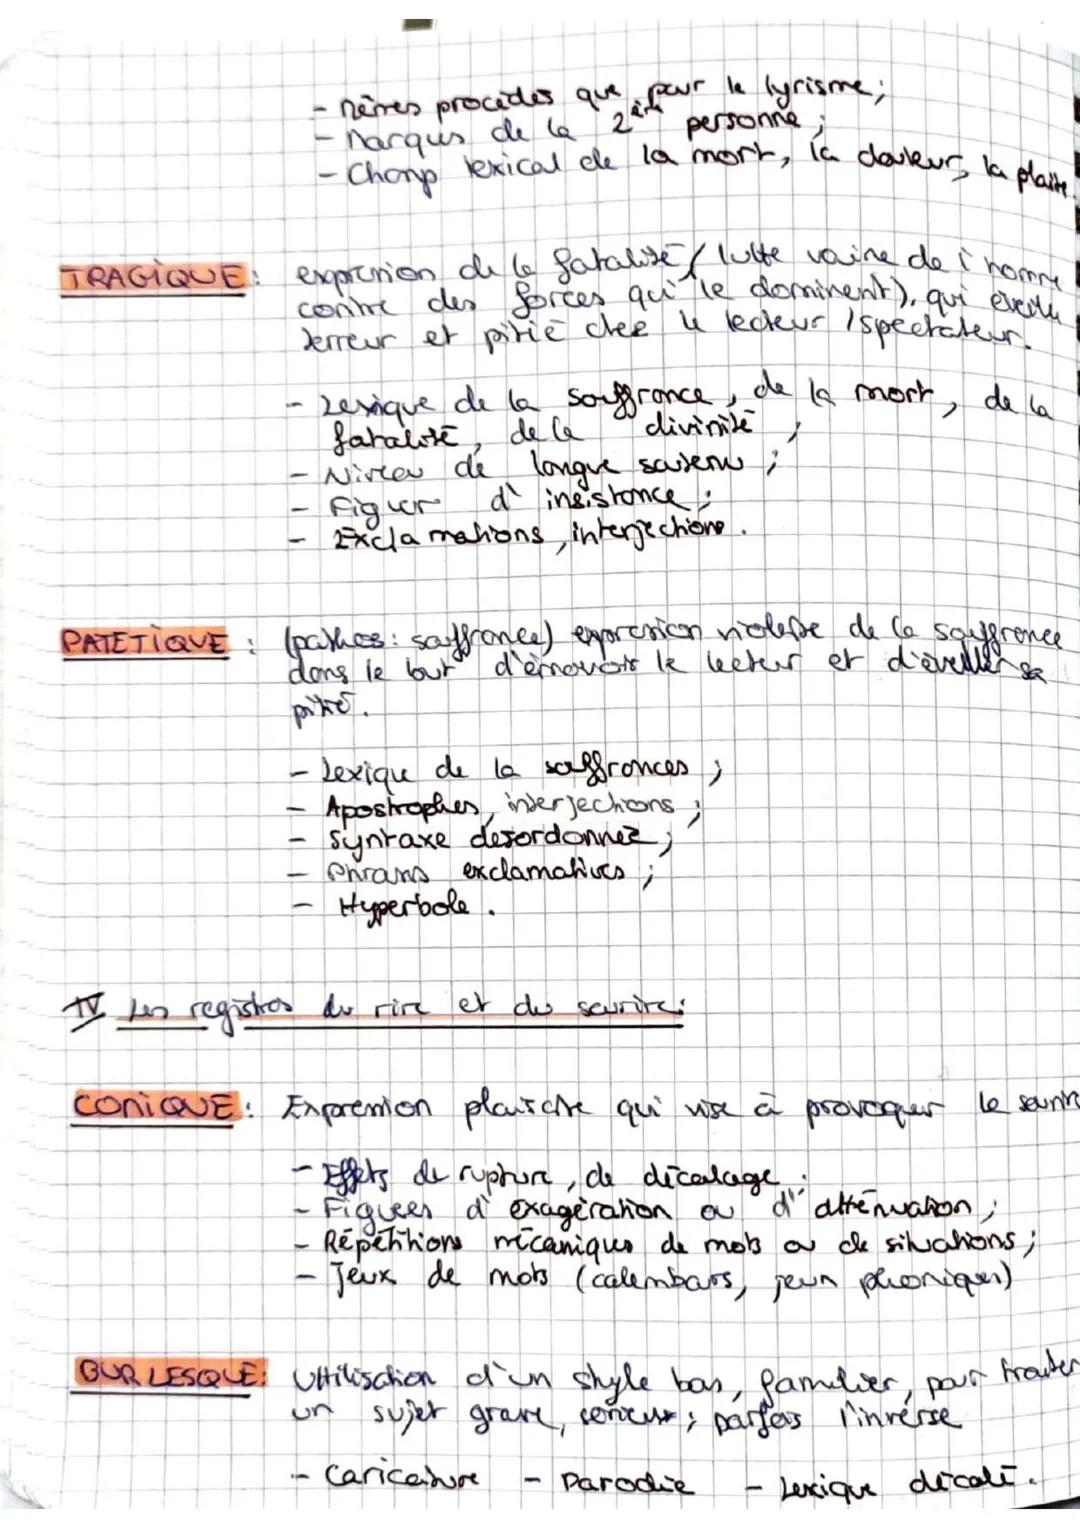 - mêmes procédés que pour le lyrisme ;
- Marques de la 2ème personne ;
- Champ lexical de la mort, la douleur, la plainte.
TRAGIQUE : expression de la fatalité (lutte vaine de l'homme
contre des forces qui le dominent), qui éveille
terreur et pitié chez le lecteur / spectateur.
- Lexique de la souffrance, de la mort, de la
fatalité, de la divinité ;
- Niveau de langue soutenu ;
- Figure d'insistance ;
- Exclamations, interjections.
PATETIQUE : (pathos : souffrance) expression violente de la souffrance
dans le but d'émouvoir le lecteur et d'éveiller sa
pitié.
- Lexique de la souffrances ;
- Apostrophes, interjections ;
- Syntaxe desordonnée ;
- Phrases exclamatives ;
- Hyperbole.
IV Les registres du rire et du sourire :
COMIQUE : Expression plaisante qui vise à provoquer le sourire
- Effets de rupture, de décalage ;
- Figures d'exagération ou d'atténuation ;
- Répétitions mécaniques de mots ou de situations ;
- Jeux de mots (calembours, jeux phoniques)
BURLESQUE : Uttilisation d'un style bas, familier, pour traiter
un sujet grave, sérieux ; parfois l'inverse
- Caricature - Parodie - Lexique décalé.